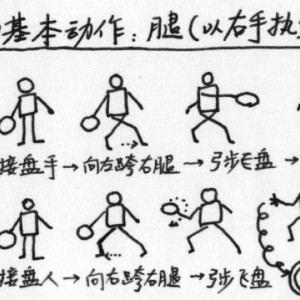 基本动作：腿(以右手执
接盘手→向左跨右腿→弓步飞盘→
接盘人→向右跨右腿→弓步飞盘